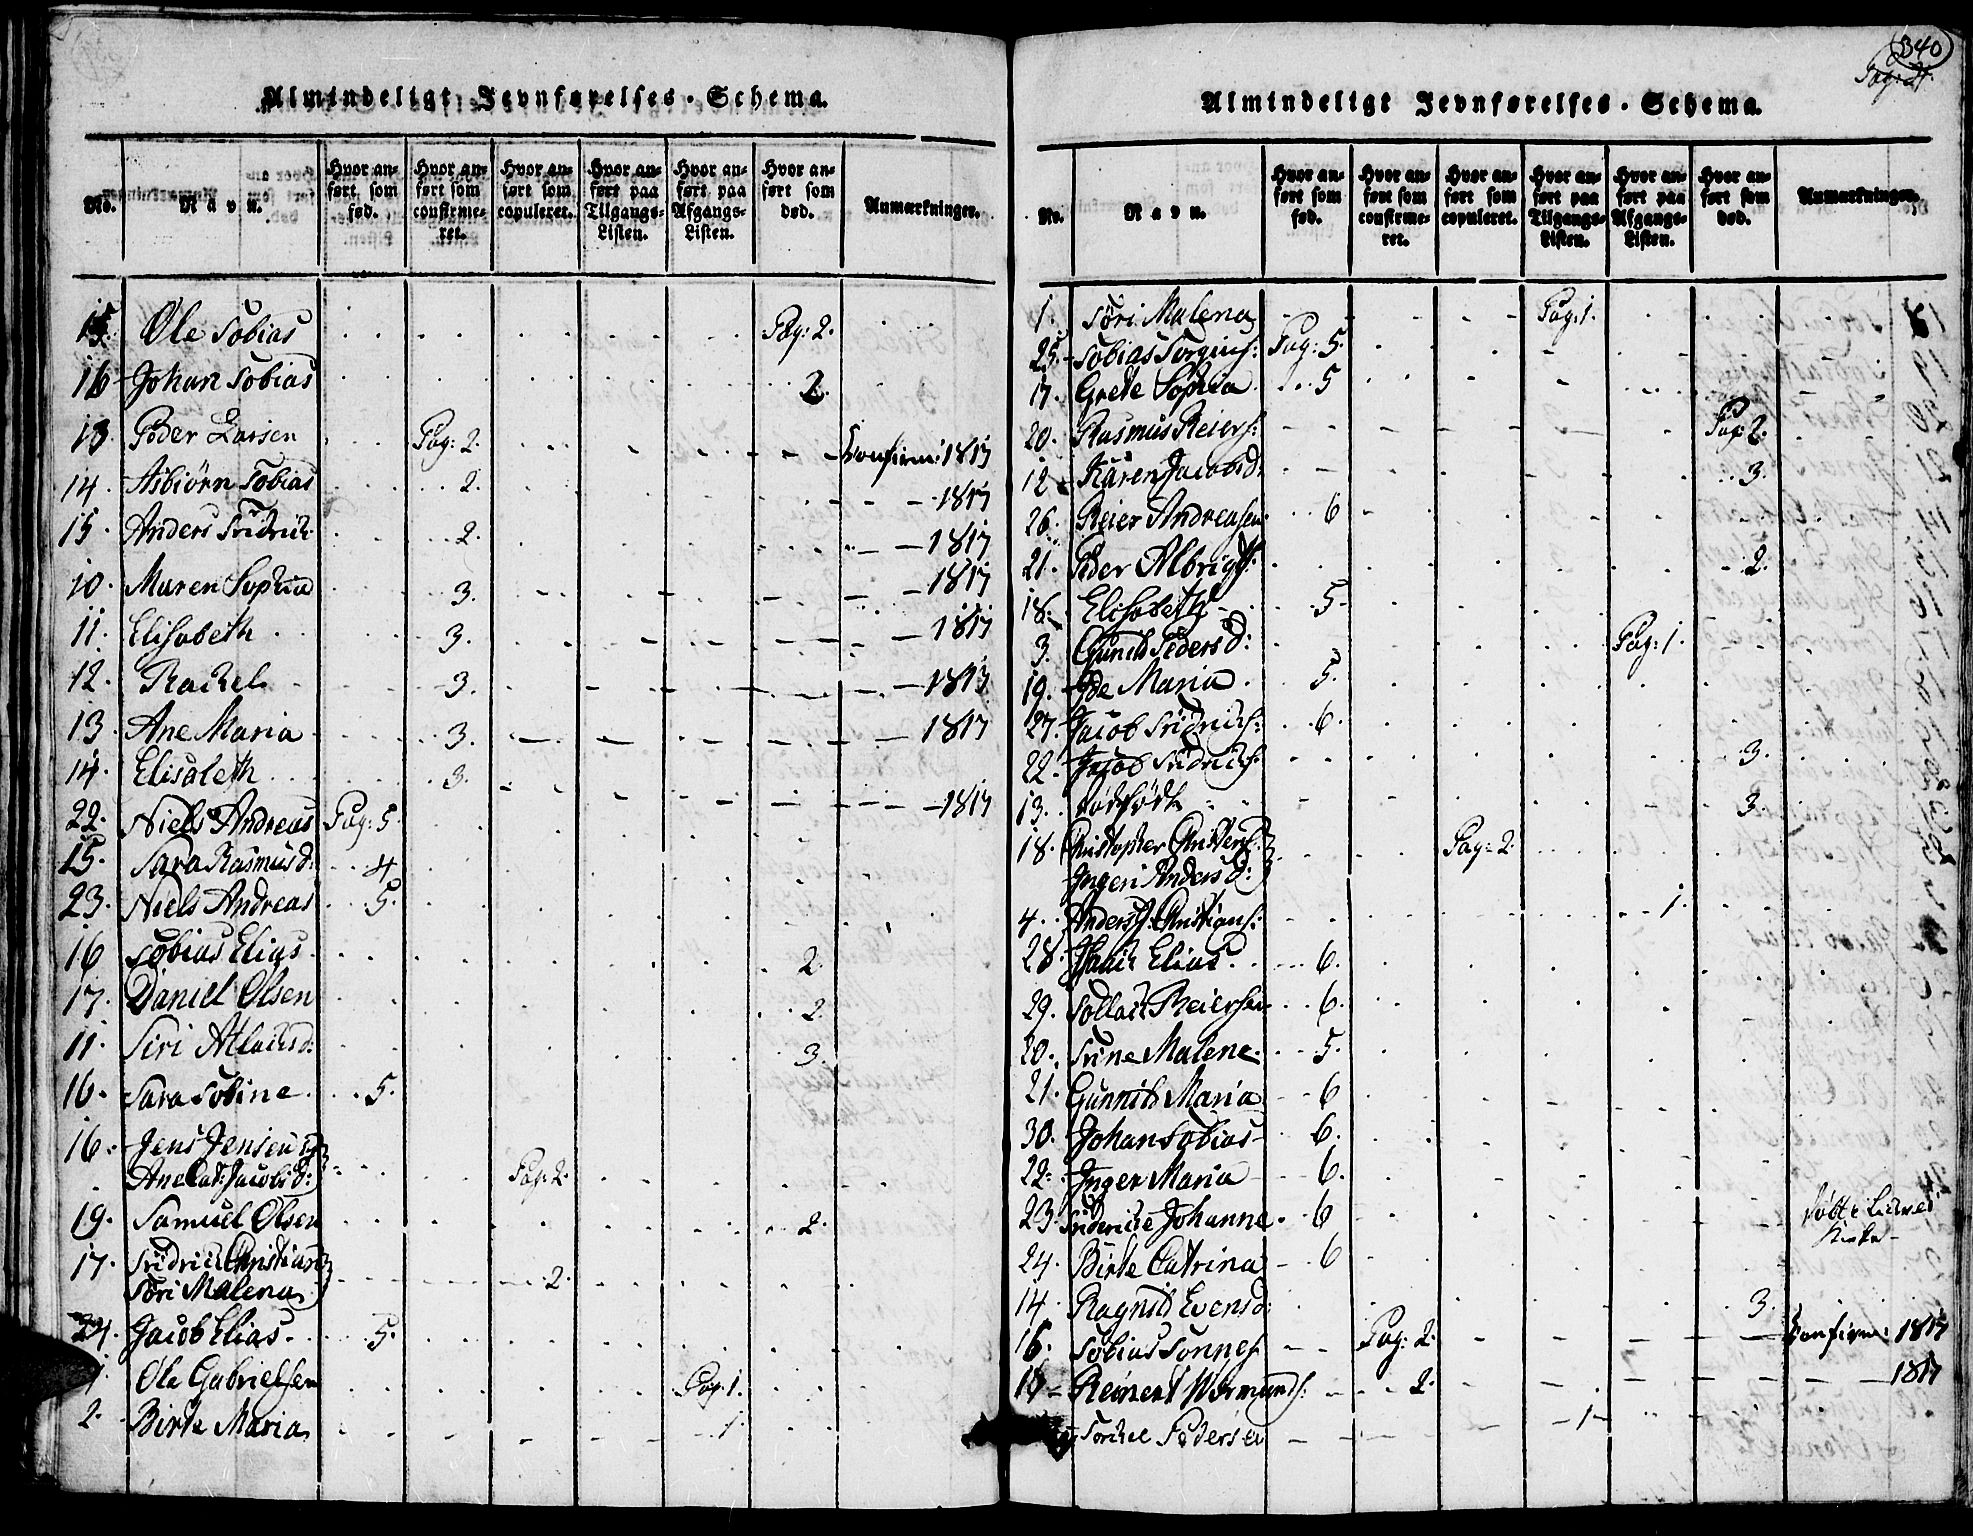 Almindeligt Jevnførelses-Schema.
No. Navn. Hvor anført som fød. Hvor anført som confirmeret. Hvor anført som copuleret. Hvor anført paa Tilgangs-Listen. Hvor anført paa Afgangs-Listen. Hvor anført som død. Anmærkninger.
15. Ole Tobias Pag: 2.
16 Johan Tobias 2.
13. Peder Larsen Pag: 2. Confirm: 1817
14. Asbiörn Tobias 2. 1817
15. Anders Fridrich 2. 1817
10. Maren Sophia 3. 1817
11. Elisabeth 3. 1817
12. Rachel 3. 1817
13. Ane Maria 3. 1817
14. Elisabeth 3. 1817
22. Niels Andreas Pag: 5.
15. Sara Rasmusd: 4
23. Niels Andreas 5.
16 Tobias Elias 2.
17. Daniel Olsen 2.
11. Siri Atlachsd: 3.
16. Sara Tobine 5.
16. Jens Jensen og
Ane Cat: Jacobsd: Pag: 2.
19. Samuel Olsen 2.
17. Fridrich Christians
Töri Malena 2.
24. Jacob Elias. 5.
1. Ole Gabrielsen Pag: 1.
2. Birte Maria 1.
340
Pag: 21.
Almindeligt Jevnførelses-Schema.
No. Navn. Hvor anført som fød. Hvor anført som confirmeret. Hvor anført som copuleret. Hvor anført paa Tilgangs-Listen. Hvor anført paa Afgangs-Listen. Hvor anført som død. Anmærkninger.
1. Töri Malena Pag: 1.
25. Tobias Torgius: Pag: 5.
17. Grete Sophia 5
20. Rasmus Reiers: Pag: 2.
12. Karen Jacobsd: 3.
26. Reier Andreasen 6
21. Peder Albrigts: 2.
18. Elisabeth 5.
3. Gunild Pedersd: Pag: 1.
19. Ide Maria 5.
27. Jacob Fridrichs: 6.
22. Jacob Fridrichs: 3.
13. Dödfödt 3.
18. Christopher Christens:
Ingeri Andersd: Pag: 2.
4. Anders J. Christians: 1.
28. Isaich Elias 6.
29. Tollach Reiersen 6.
20. Trine Malene 5.
21. Gunnild Maria 6
30. Johan Tobias 6.
22. Inger Maria 6.
23. Frideriche Johanne 6 Döbt i
Kirke
24. Birte Catrina 6
14. Ragnild Evensd: 3.
16. Tobias Tönnes: Pag: 2. Confirm: 1817
18 Reinert Wermunds: 2. 1817
Torchel Pedersen 1